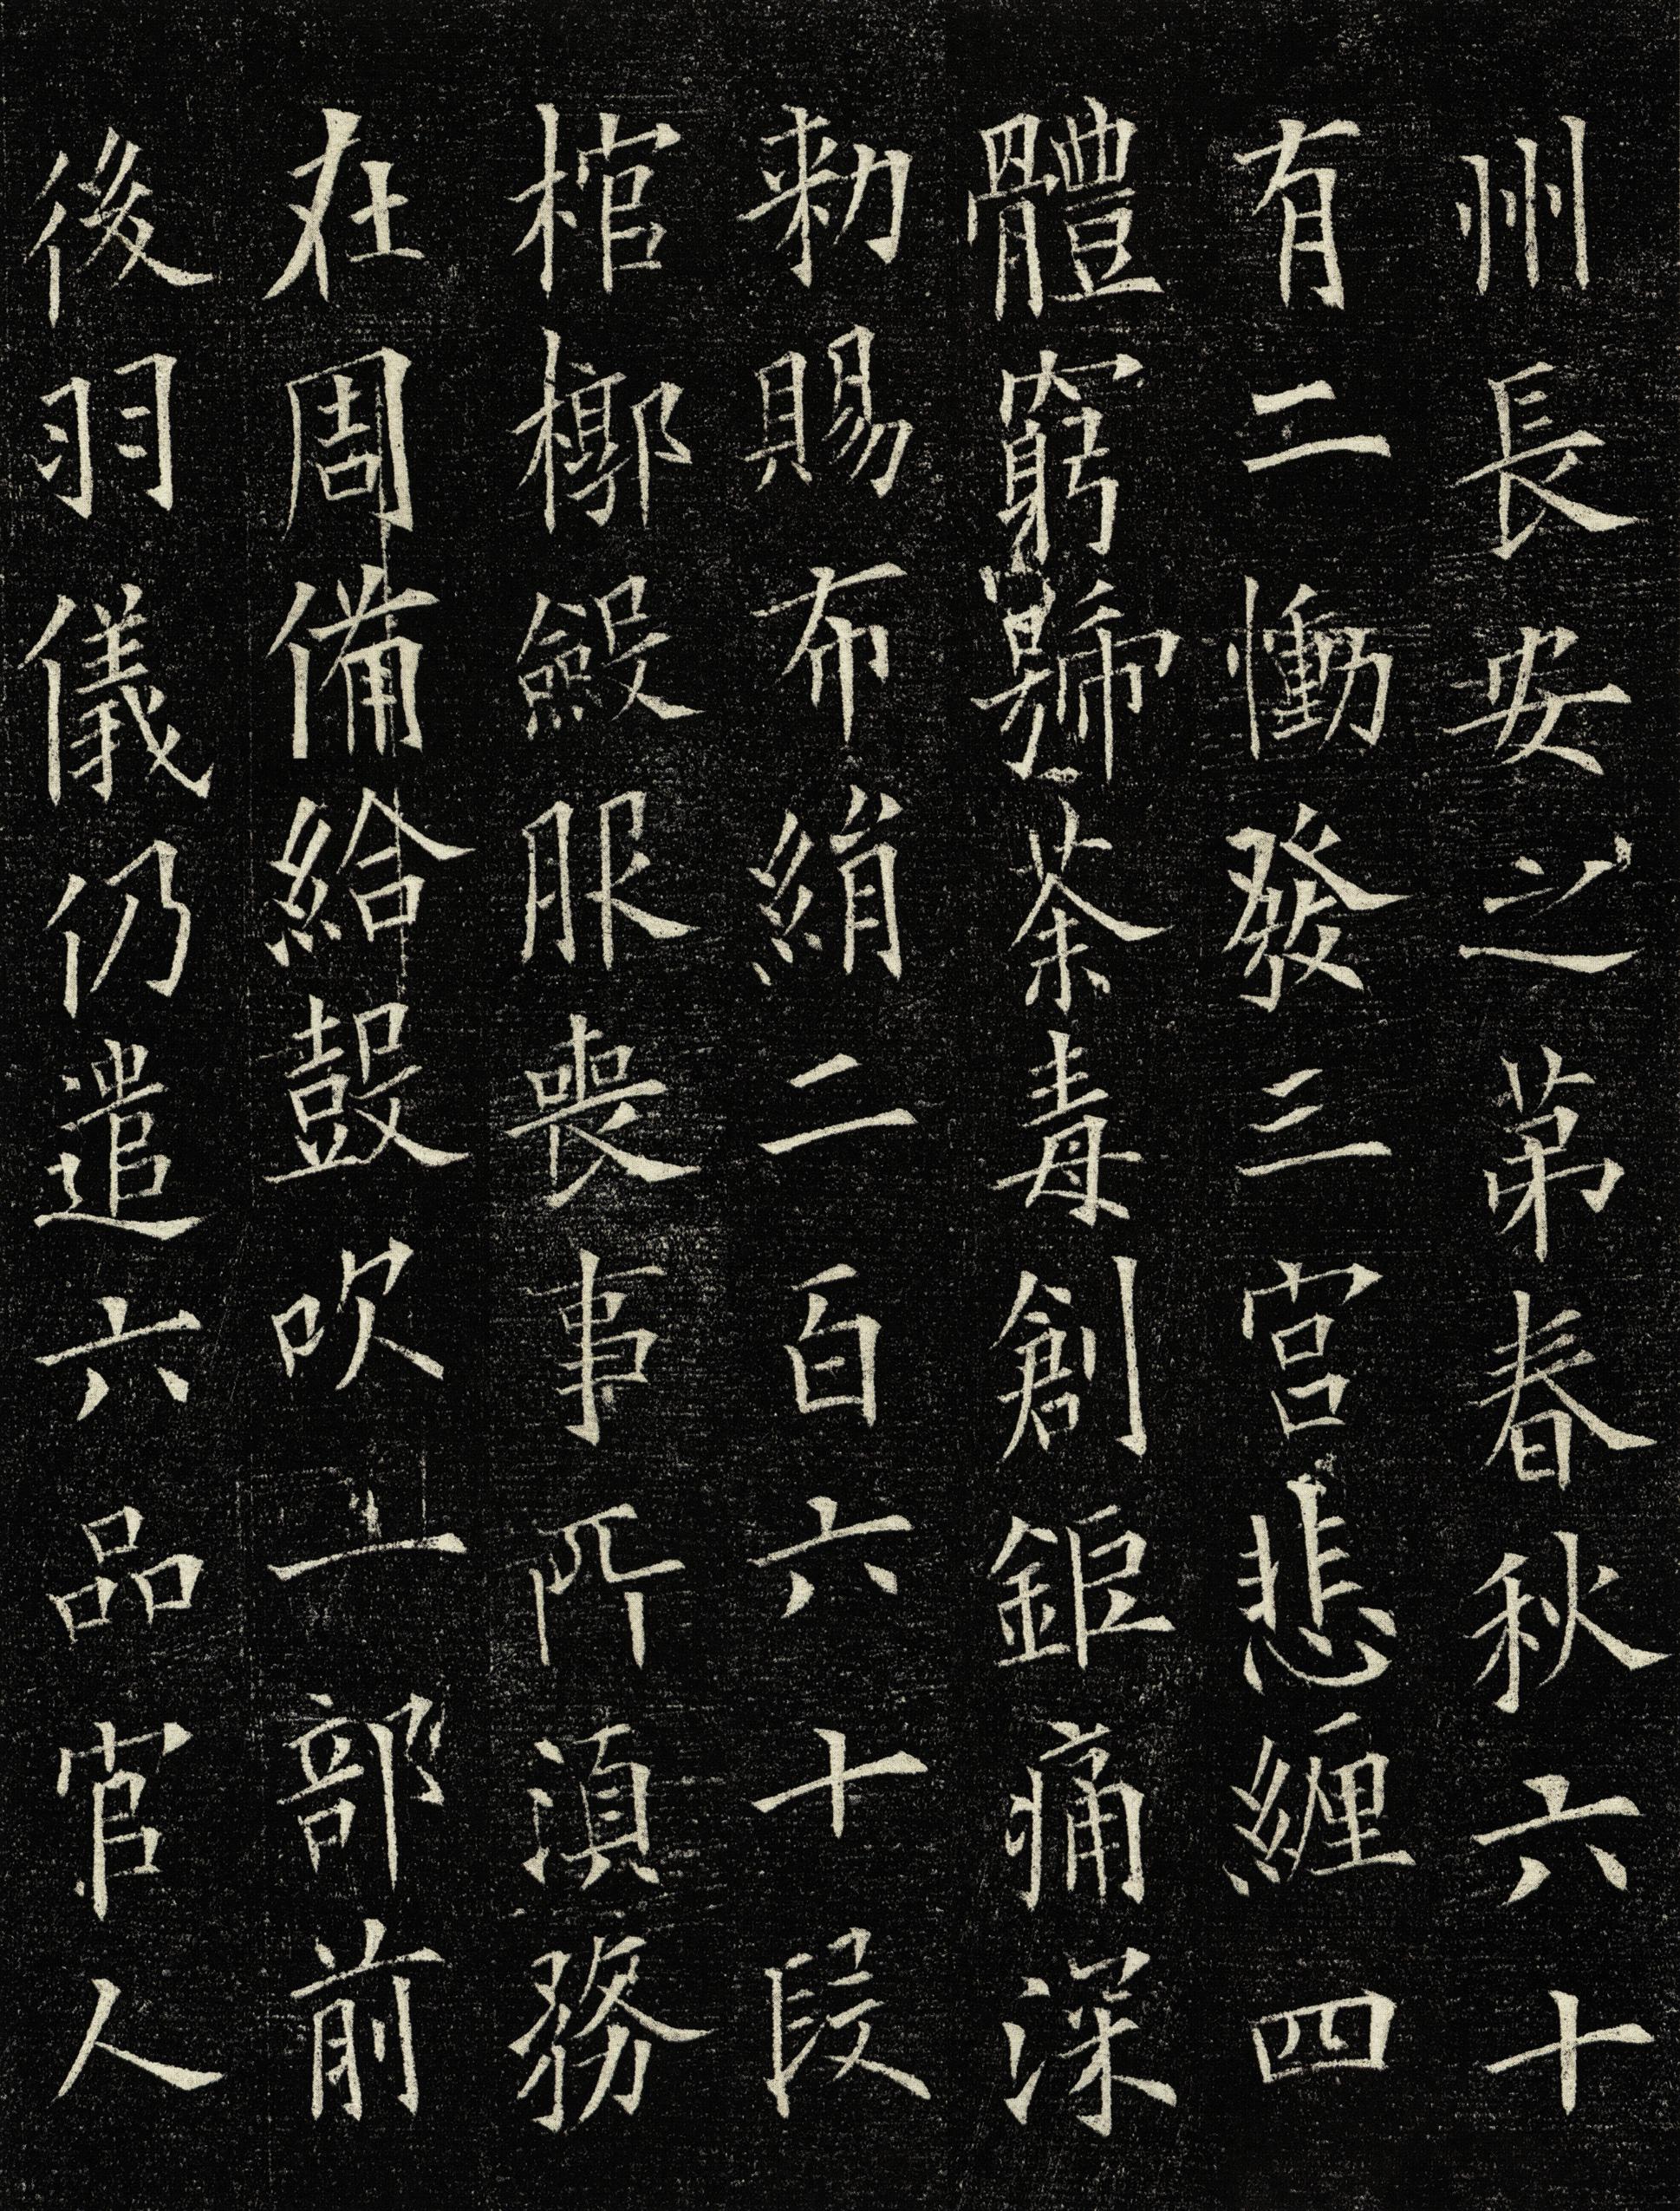 州長安之苐春秋六十
有二慟發三宮悲纏四
體窮號荼毒創鉅痛深
勑賜布絹二百六十段
棺槨斂服喪事所湏務
在周備給鼓吹一部前
後羽儀仍遣六品官人